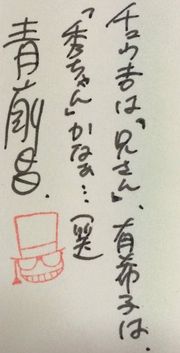 チュウ吉は、「兄さん」、有希子は、
「秀ちゃん」かなぁ…(笑)
青山剛昌